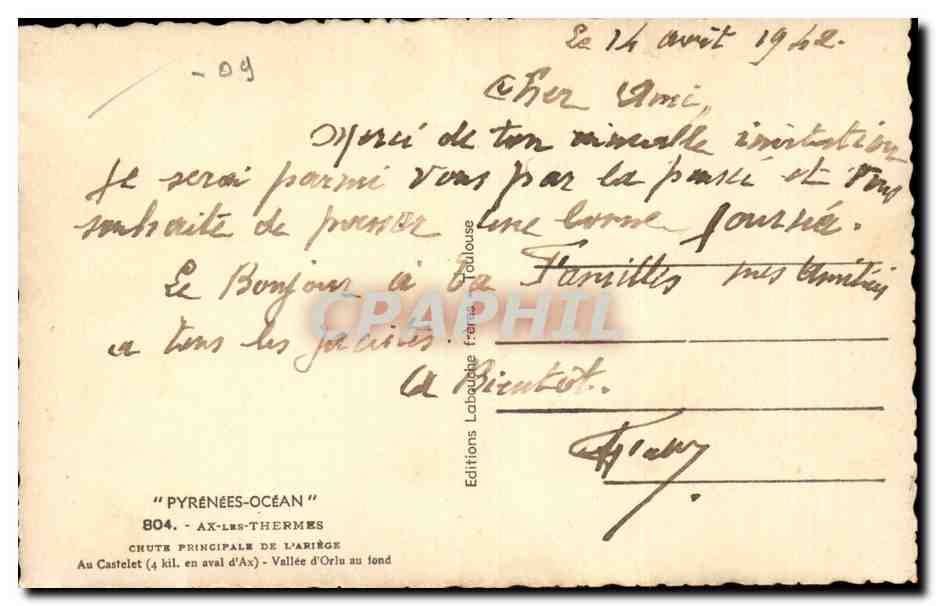 - 09
Le 14 avrit 1942.
Cher Ami,
Merci de ton invitation
Je serai parmi vous par la pensé et vous
souhaite de passer une bonne journée.
Le Bonjour à ta Familles mes Amitiés
a tous les
a Bientot.
Editions Labouche frères Toulouse
CPARPHIL
"PYRÉNÉES-OCÉAN"
804. - AX-LES-THERMES
CHUTE PRINCIPALE DE L'ARIÈGE
Au Castelet (4 kil. en aval d'Ax) - Vallée d'Orlu au fond